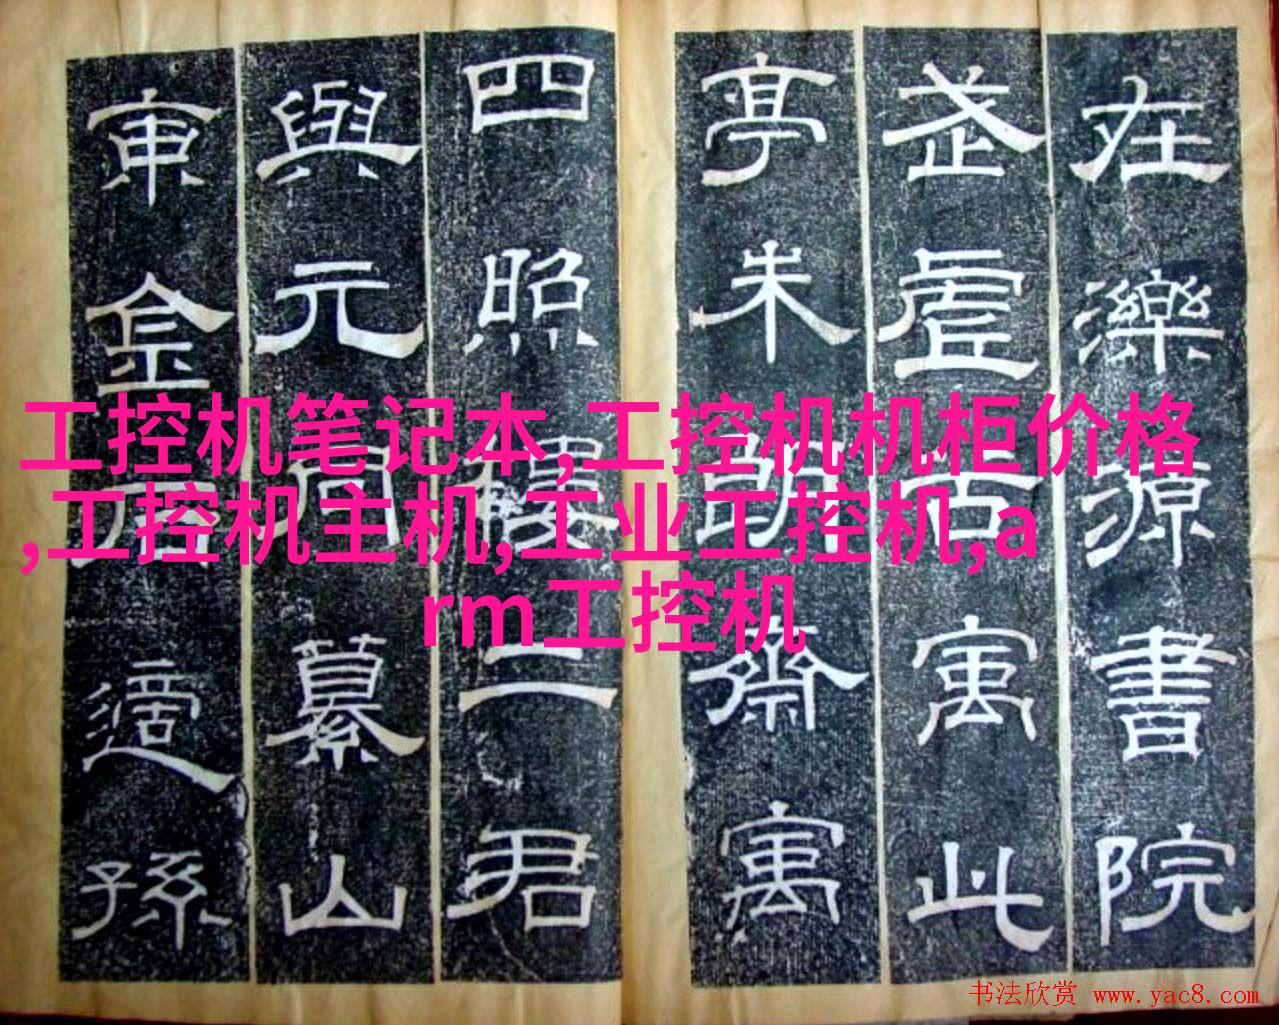 在濼源書院
武虛谷寓此
亭朱朗齋寓
四照樓二君
與元同纂山
東金石適孫
工控机笔记本,工控机机柜价格
,工控机主机,工业工控机,a
rm工控机
书法欣赏 www.yac8.com